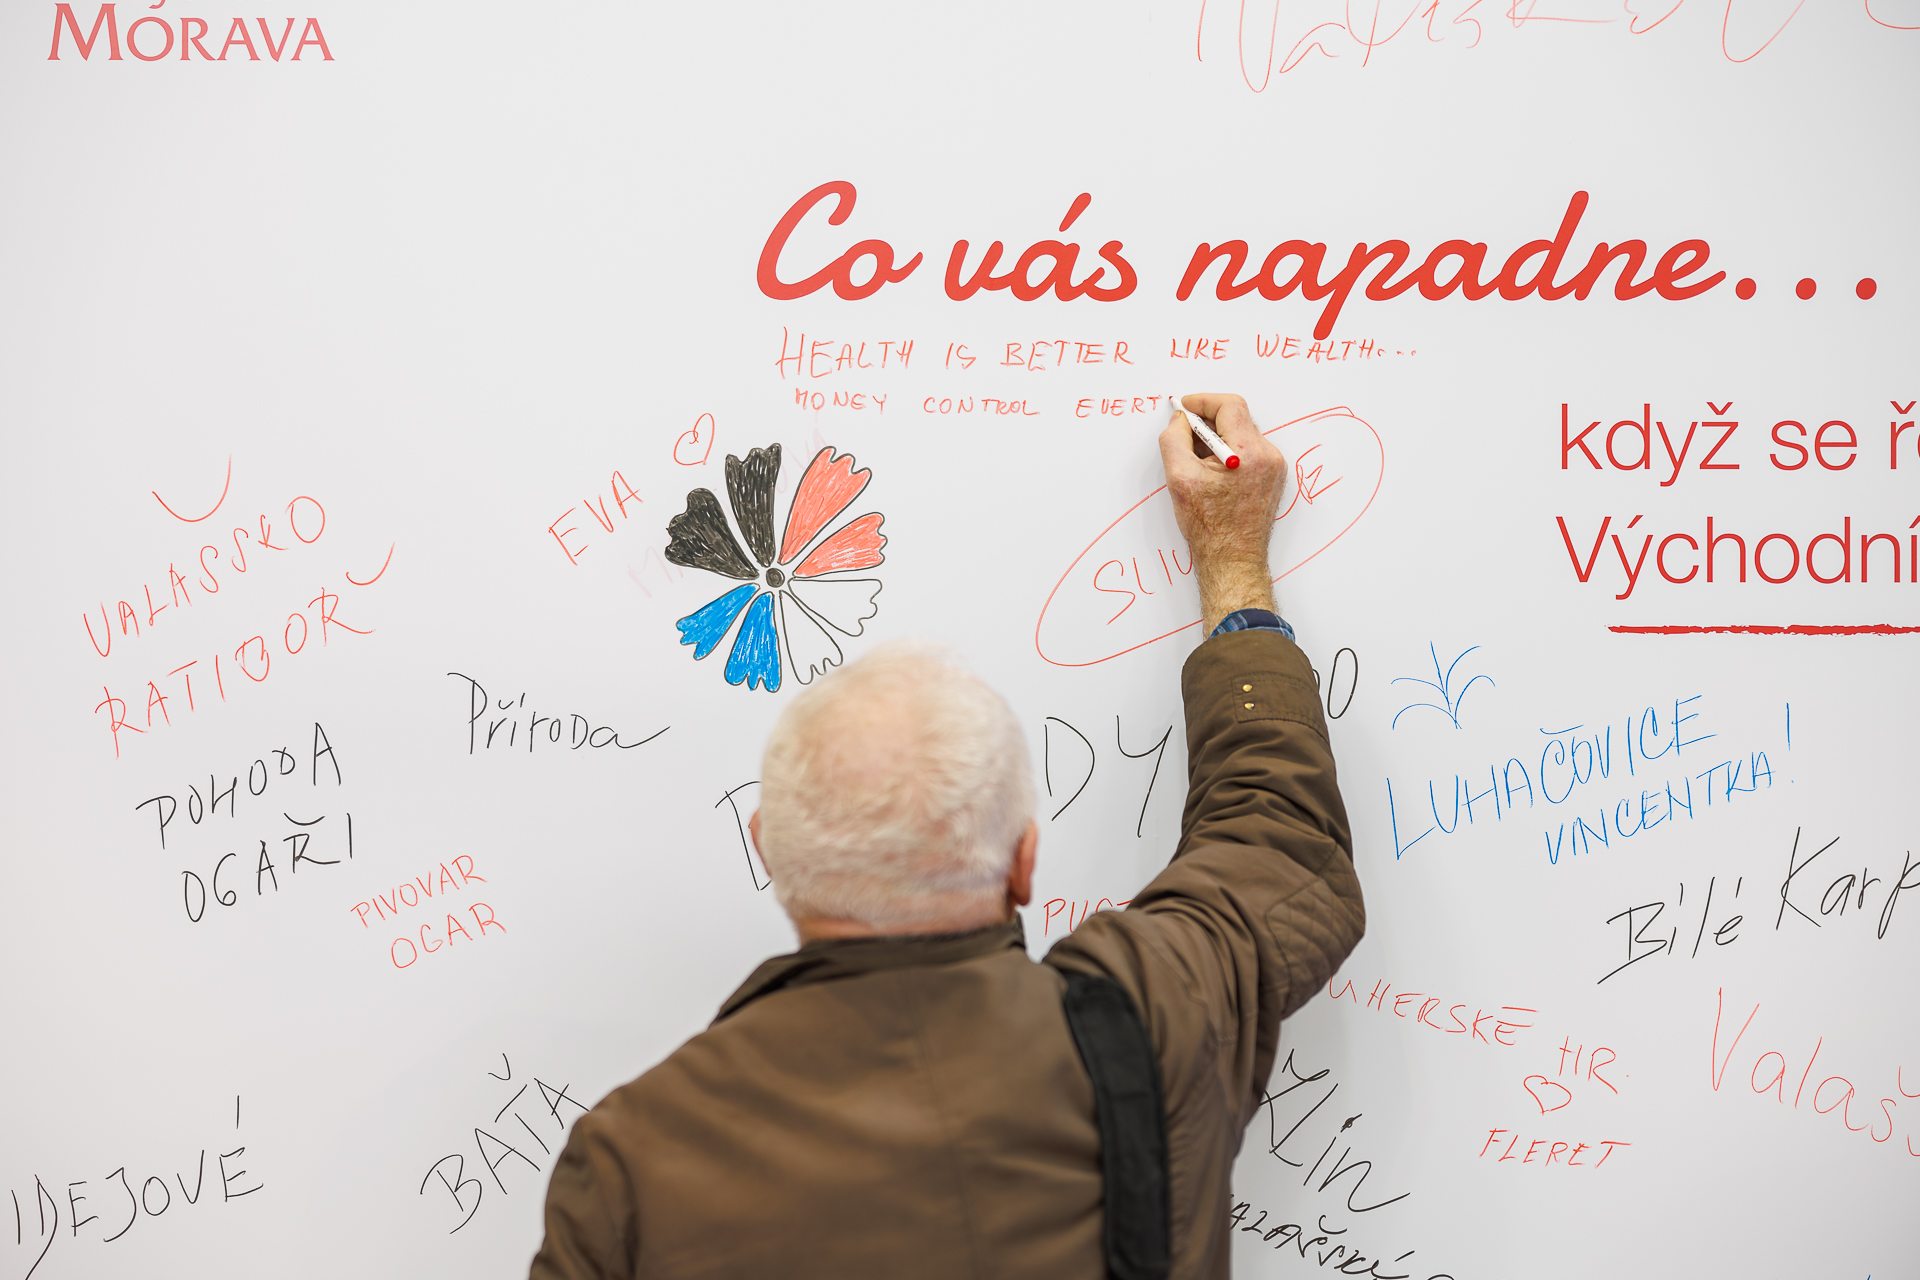 MORAVA
Co vás napadne...
HEALTH IS BETTER LIKE WEALTH...
MONEY CONTROL EVERT
když se ř
Východní
EVA
VALASSKO
RATIBOŘ
Příroda
POHODA
OGAŘI
PIVOVAR
OGAR
LUHAČOVICE
VINCENTKA!
Bílé Karp
UHERSKÉ
HR.
FLERET
Valaš
BAŤA
Zlín
IDEJOVÉ